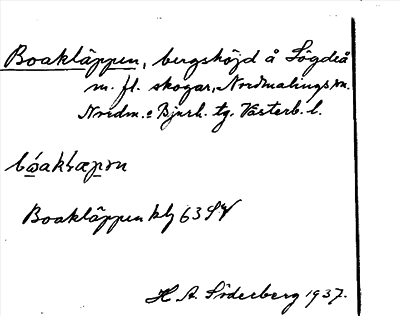 Boakläppen, bergshöjd å Lögdeå
m. fl. skogar, Nordmalings sn.
Nordm. o Bjurh. tg. Västerb. l.
Boakläppen kbl 63 SV
H. A. Söderberg 1937.